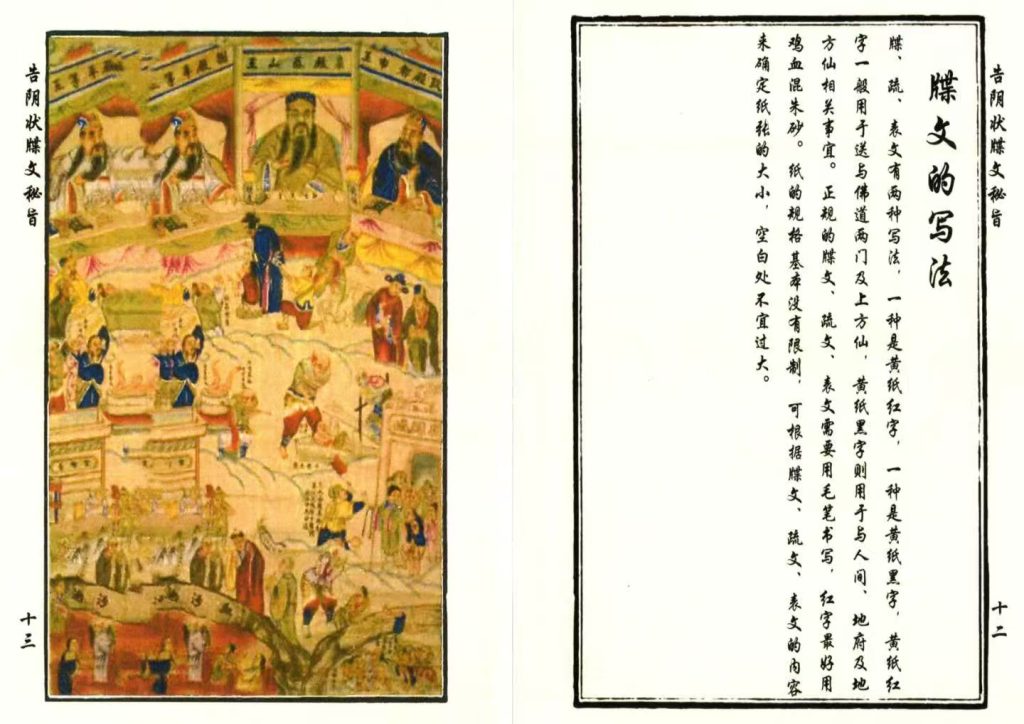 告阴状牒文秘旨
十二
牒文的写法
牒、疏、表文有两种写法，一种是黄纸红字，一种是黄纸黑字，黄纸红
字一般用于送与佛道两门及上方仙，黄纸黑字则用于与人间、地府及地
方仙相关事宜。正规的牒文、疏文、表文需要用毛笔书写，红字最好用
鸡血混朱砂。纸的规格基本没有限制，可根据牒文、疏文、表文的内容
来确定纸张的大小，空白处不宜过大。
告阴状牒文秘旨
十三